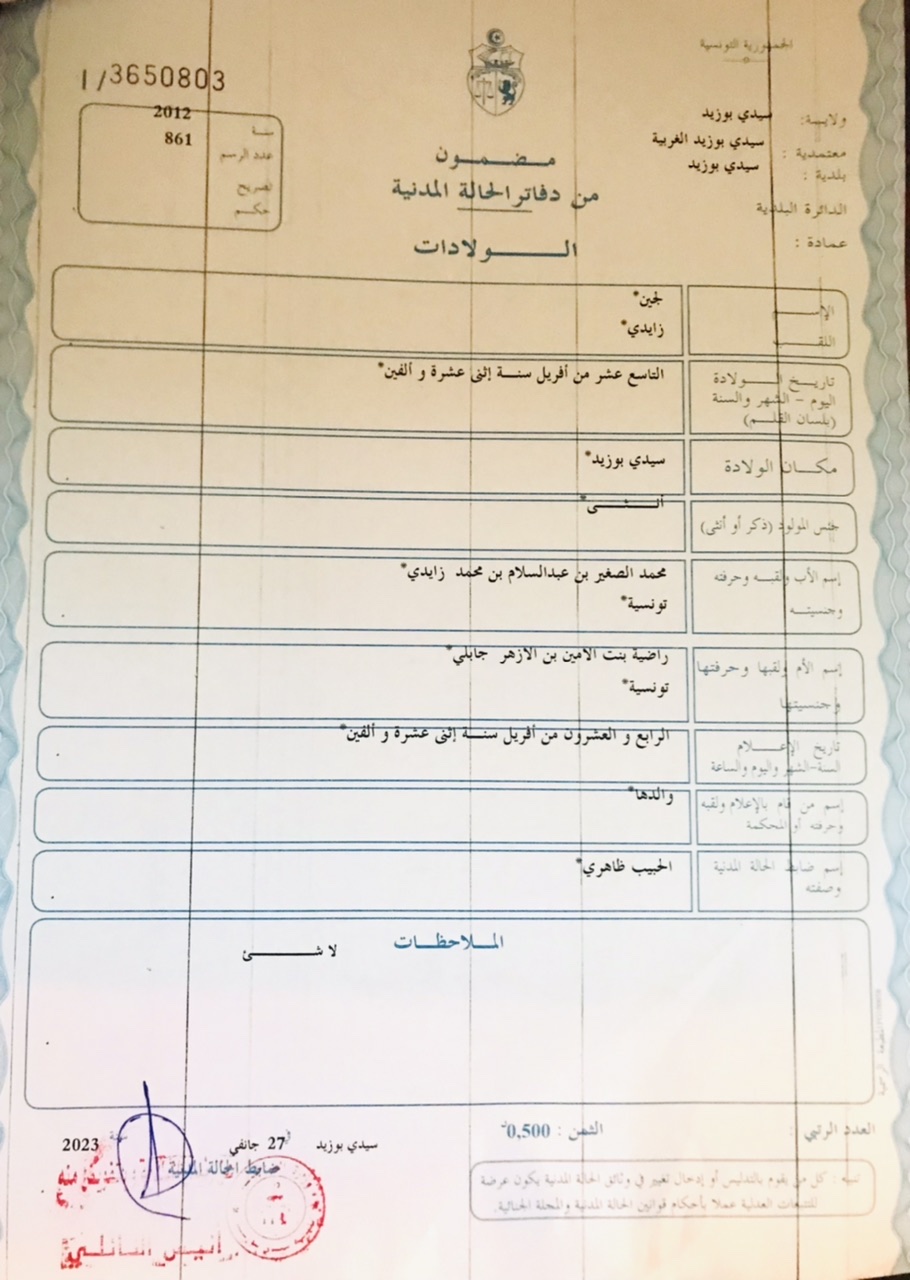 الجمهورية التونسية
I/3650803
ولايــة: سيدي بوزيد
معتمدية : سيدي بوزيد الغربية
بلدية : سيدي بوزيد
الدائرة البلدية
عمادة :
سنة 2012
عدد الرسم 861
تصريح
حكم
مـضـمـون
من دفاتر الحالة المدنية
الـــولادات
الإســم لجين*
اللقــب زايدي*
تاريـخ الــولادة التاسع عشر من أفريل سنـة إثنى عشرة و ألفين*
اليوم - الشهر والسنة
(بلسان القلـم)
مكـان الولادة سيدي بوزيد*
جنس المولود (ذكر أو أنثى) أنــثــى*
إسم الأب ولقبـه وحرفته محمد الصغير بن عبدالسلام بن محمد زايدي*
وجنسيتـه تونسية*
إسم الأم ولقبها وحرفتها راضية بنت الامين بن الازهر جابلي*
وجنسيتها تونسية*
تاريخ الإعـلام الرابع و العشرون من أفريل سنـة إثنى عشرة و ألفين*
السنة-الشهر واليوم والساعة
إسم من قام بالإعلام ولقبه والدها*
وحرفته أو المحكمة
إسم ضابط الحالة المدنية الحبيب ظاهري*
وصفته
المـلاحظـات
لا شــئ
العدد الرتبي :
الثمن : 0,500د
سيدي بوزيد 27 جانفي سنة 2023
ضابط الحالة المدنية
تنبيه : كل من يقوم بالتدليس أو إدخال تغيير في وثائق الحالة المدنية يكون عرضة
للتتبعات العدلية عملا بأحكام قوانين الحالة المدنية والمجلة الجنائية.
أنيس